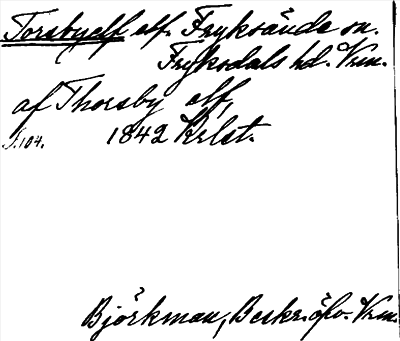 Torsbyelf elf. Fryksände sn.
Fryksdals hd. Vrm.
af Thorsby elf,
S. 104. 1842 Krlst.
Björkman, Beskr. öfv. Vrm.